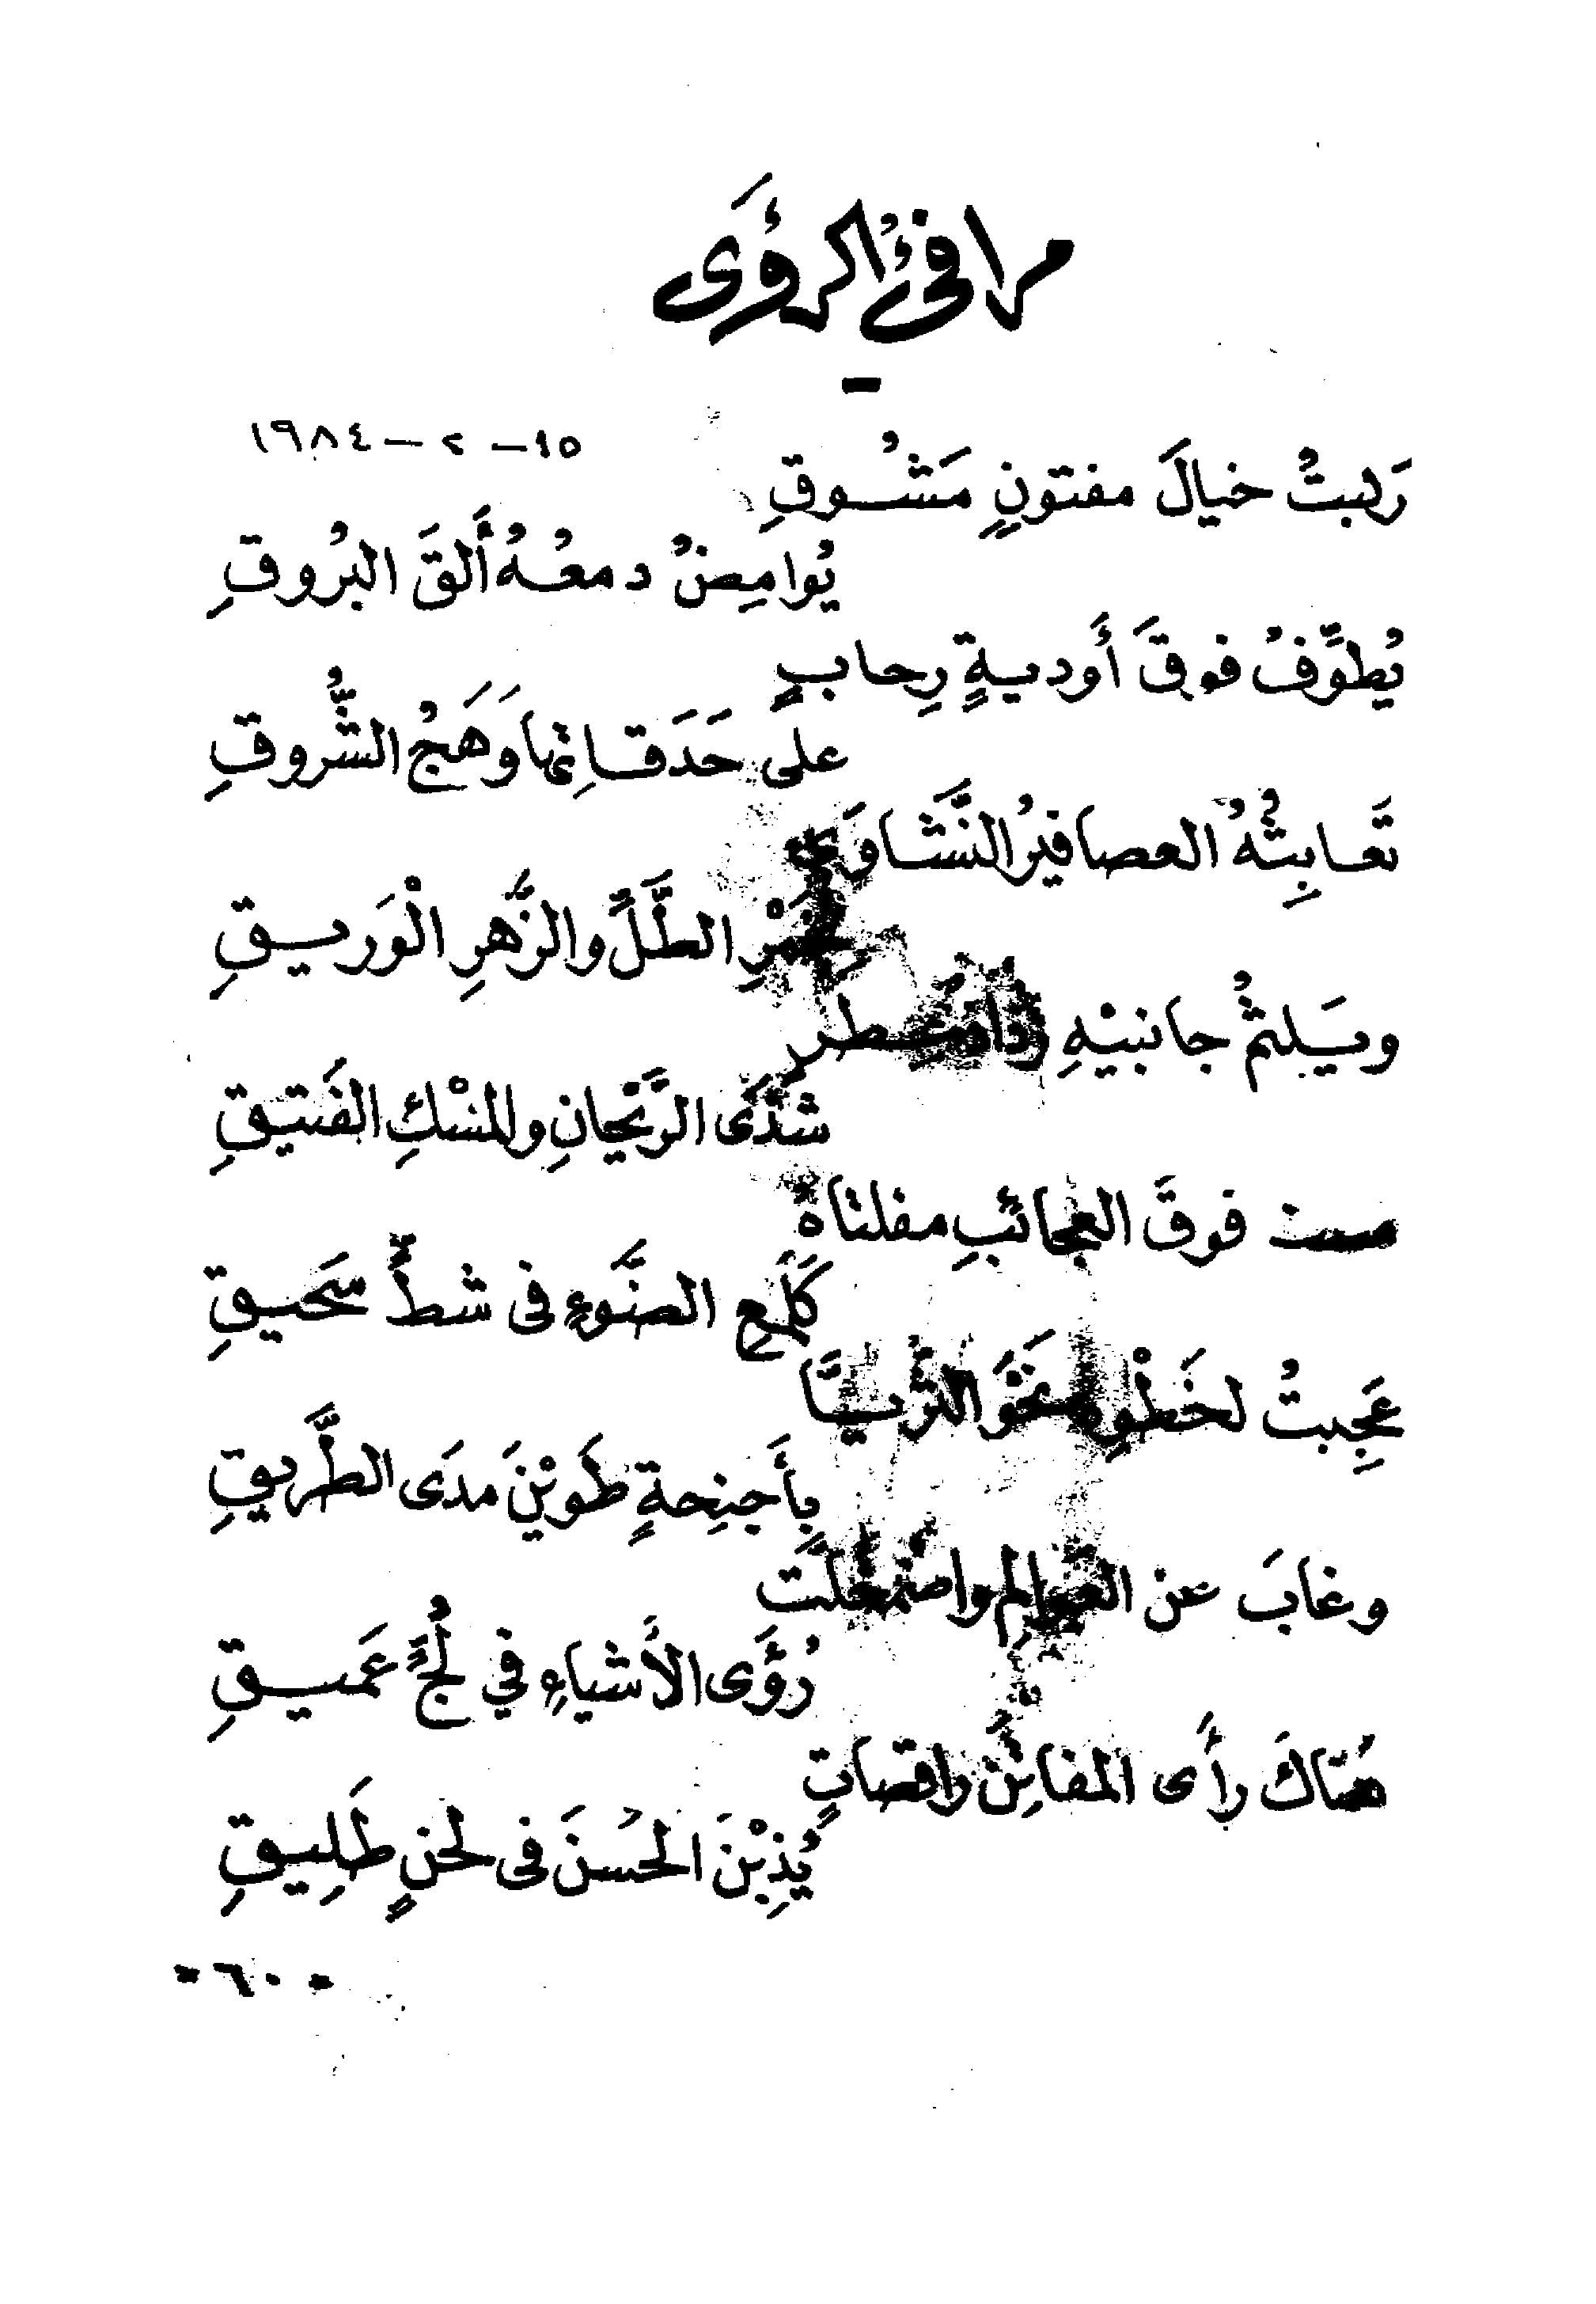 مرافئُ الرؤَى
١٥ - ٢ - ١٩٨٤
رَكبتُ خيالَ مفتونٍ مَشُوقِ
يُوامِضُ دمعُهُ أَلقَ البُروقِ
يُطوِّفُ فوقَ أَوديةٍ رِحابٍ
على حَدَقاتِها وَهَجُ الشُّروقِ
تَعابِثُهُ العصافيرُ النَّشاوَى
بخَمْرِ الطَّلِّ والزَّهرِ الْوَريقِ
ويَلثمُ جانبيْهِ عطرٍ
شَذَى الرَّيْحانِ والمسْكِ الفَتيقِ
فوقَ العجائبِ مقلتاهُ
كَلَمعِ الضَّوءِ فى شطٍّ سَحيقِ
عَجِبتُ لخَطْوِهِ نَحْوَ الثُّريَّا
بِأَجنِحةٍ طَوَيْنَ مدَى الطَّريقِ
وغابَ عن العَوالِمِ واضْمَحَلَّت
رُؤَى الأَشياءِ في لُجٍّ عَميقِ
هُناكَ رأَى المفاتِنَ راقصاتٍ
يُذِبْنَ الحُسنَ فى لحنٍ طَلِيقِ
- ٦٠ -